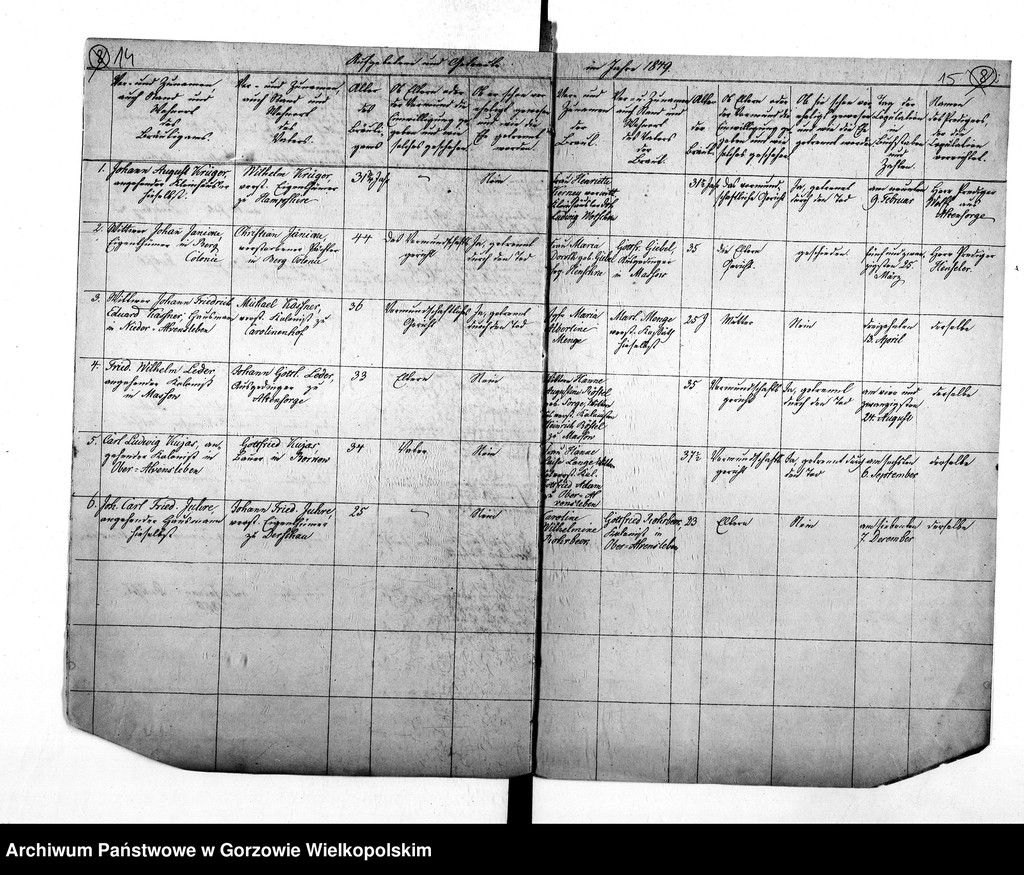 8 14
Aufgeboten und Getraut
im Jahre 1849.
15 8
Vor- und Zunamen,
auch Stand und
Wohnort
des
Bräutigams.
Vor- und Zunamen,
auch Stand und
Wohnort
des
Vaters.
Alter
des
Bräuti-
gams
Ob Eltern oder
der Vormund die
Einwilligung ge-
geben und wie
solches geschehen
Ob er schon ver-
ehelicht gewesen
und wie die
Ehe getrennt
worden.
Vor- und
Zunamen
der
Braut.
Vor- u. Zunamen
auch Stand und
Wohnort
des Vaters
der
Braut.
Alter
der
Braut.
Ob Eltern oder
der Vormund die
Einwilligung ge-
geben und wie
solches geschehen
Ob sie schon ver-
ehelicht gewesen
und wie die Ehe
getrennt worden.
Tag der
Copulation
in
Buchstaben
und
Zahlen.
Namen
des Predigers,
der die
Copulation
verrichtet.
1. Johann August Krüger,
angehender
hieselbst.
Wilhelm Krüger,
verst. Eigenthümer
zu Hampshire
31½ Jahr
Nein
Frau Henriette
verwitt.
Ludwig
31½ Jahr
das vormund-
schaftliche Gericht
Ja, getrennt
durch den Tod
am neunten
9. Februar
Herr Prediger
Wolff aus
Altensorge
2. Wittwer Johan
Eigenthümer in Berg
Colonie
Christian
verstorbener
in Berg Colonie
44
das Vormundschafts-
gericht
Ja, getrennt
durch den Tod
Frau Maria
Doroth. geb. Giebel
Gottfr. Giebel,
Ausgedinger
in Massow
35
die Eltern
geschieden.
fünfundzwan-
zigsten 25.
März
Herr Prediger
Henseler.
3. Wittwer Johann Friedrich
Eduard Kassner, Hausmann
in Nieder-Ahrensleben
Michael Kassner,
verst. Kolonist zu
Carolinenhof
36
Vormundschaftliches
Gericht
Ja, getrennt
durch den Tod
Maria
Albertine
Menge
Mart. Menge
verst. Kossäth
hieselbst
25 J
Mutter
Nein
dreizehnten
13. April
derselbe
4. Fried. Wilhelm Leder
angehender Kolonist
in Massow
Johann Gottl. Leder,
Ausgedinger zu
Altensorge
33
Eltern
Nein
Wittwe Hanne
Rößel
geb. Sorge, Wittwe
des verst. Kolonisten
Heinrich Rößel
zu Massow
35
Vormundschafts-
gericht
Ja, getrennt
durch den Tod
am vier und
zwanzigsten
24. August
derselbe
5. Carl Ludwig Kujas, an-
gehender Kolonist in
Ober-Ahrensleben
Gottfried Kujas,
Bauer in Borkow
34
Vater
Nein
Frau Hanne
Luise Lange, Wittwe
des verst. Kol.
Gottfried Adam
zu Ober-Ah-
rensleben
37½
Vormundschafts-
gericht
Ja, getrennt durch
den Tod
am sechsten
6. September
derselbe
6. Joh. Carl Fried. Juhre,
angehender Hausmann
hieselbst
Johann Fried. Juhre
verst. Eigenthümer
zu Derschau
25
Nein
Caroline
Wilhelmine
Rohrbeck
Gottfried Rohrbeck,
Kolonist in
Ober-Ahrensleben
23
Eltern
Nein
am siebenten
7. December
derselbe
Archiwum Państwowe w Gorzowie Wielkopolskim